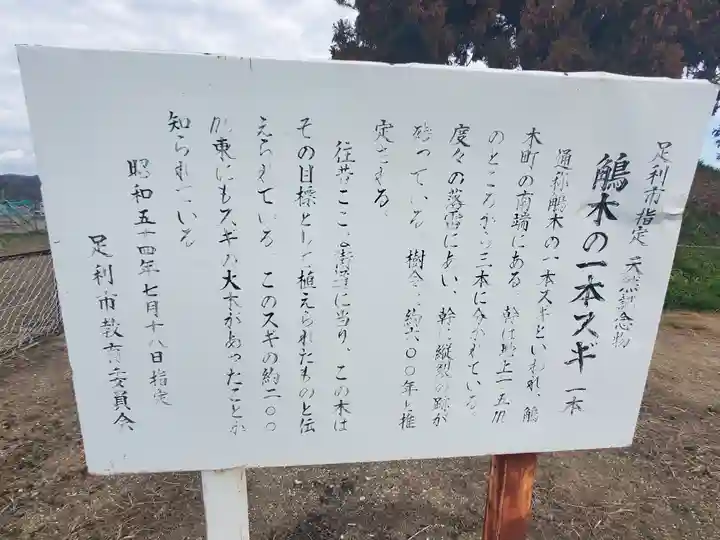 足利市指定 天然記念物
鵤木の一本スギ 一本
通称鵤木の一本スギといわれ、鵤
木町の南端にある。幹は地上一五m
のところから三本に分かれている。
度々の落雷にあい、幹に縦裂の跡が
残っている。樹令は約六〇〇年と推
定される。
往昔ここは街道に当り、この木は
その目標として植えられたものと伝
えられている。このスギの約二〇〇
m東にもスギの大木があったことが
知られている
昭和五十四年七月十八日指定
足利市教育委員会